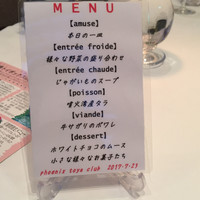 MENU
【amuse】
本日の一皿
【entrée froide】
様々な野菜の盛り合わせ
【entrée chaude】
じゃがいものスープ
【poisson】
噴火湾産タラ
【viande】
牛サガリのポワレ
【dessert】
ホワイトチョコのムース
小さな様々なお菓子たち
phoenix toys club 2017-7-23